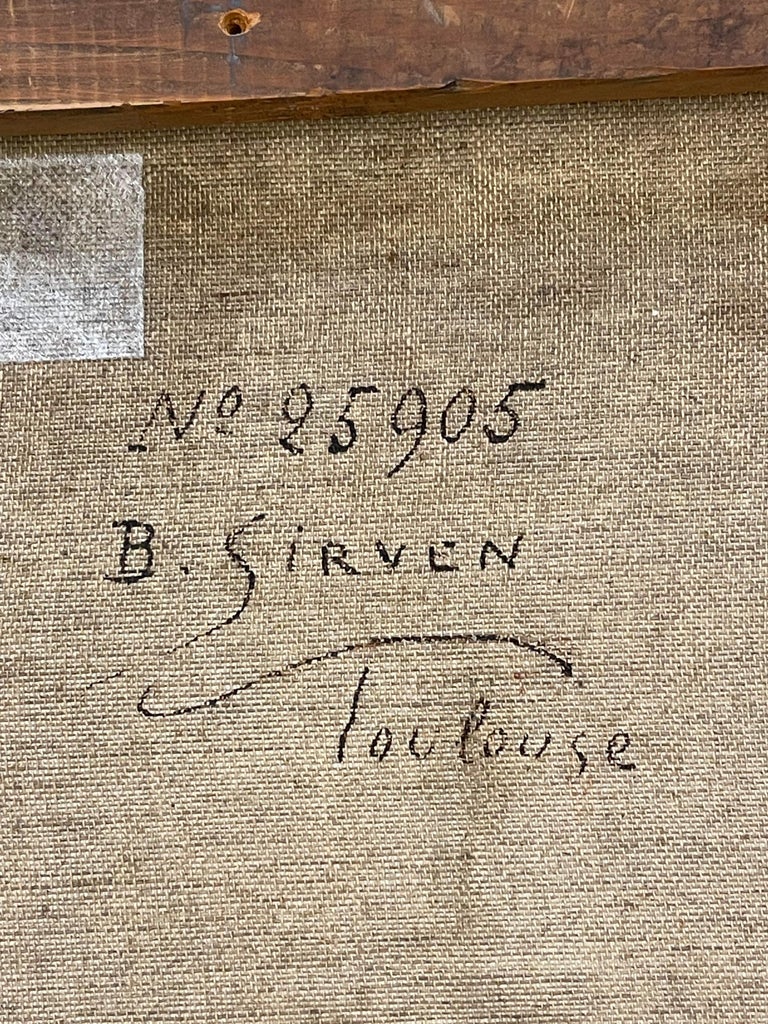 Nº 25905
B. SIRVEN
Toulouse